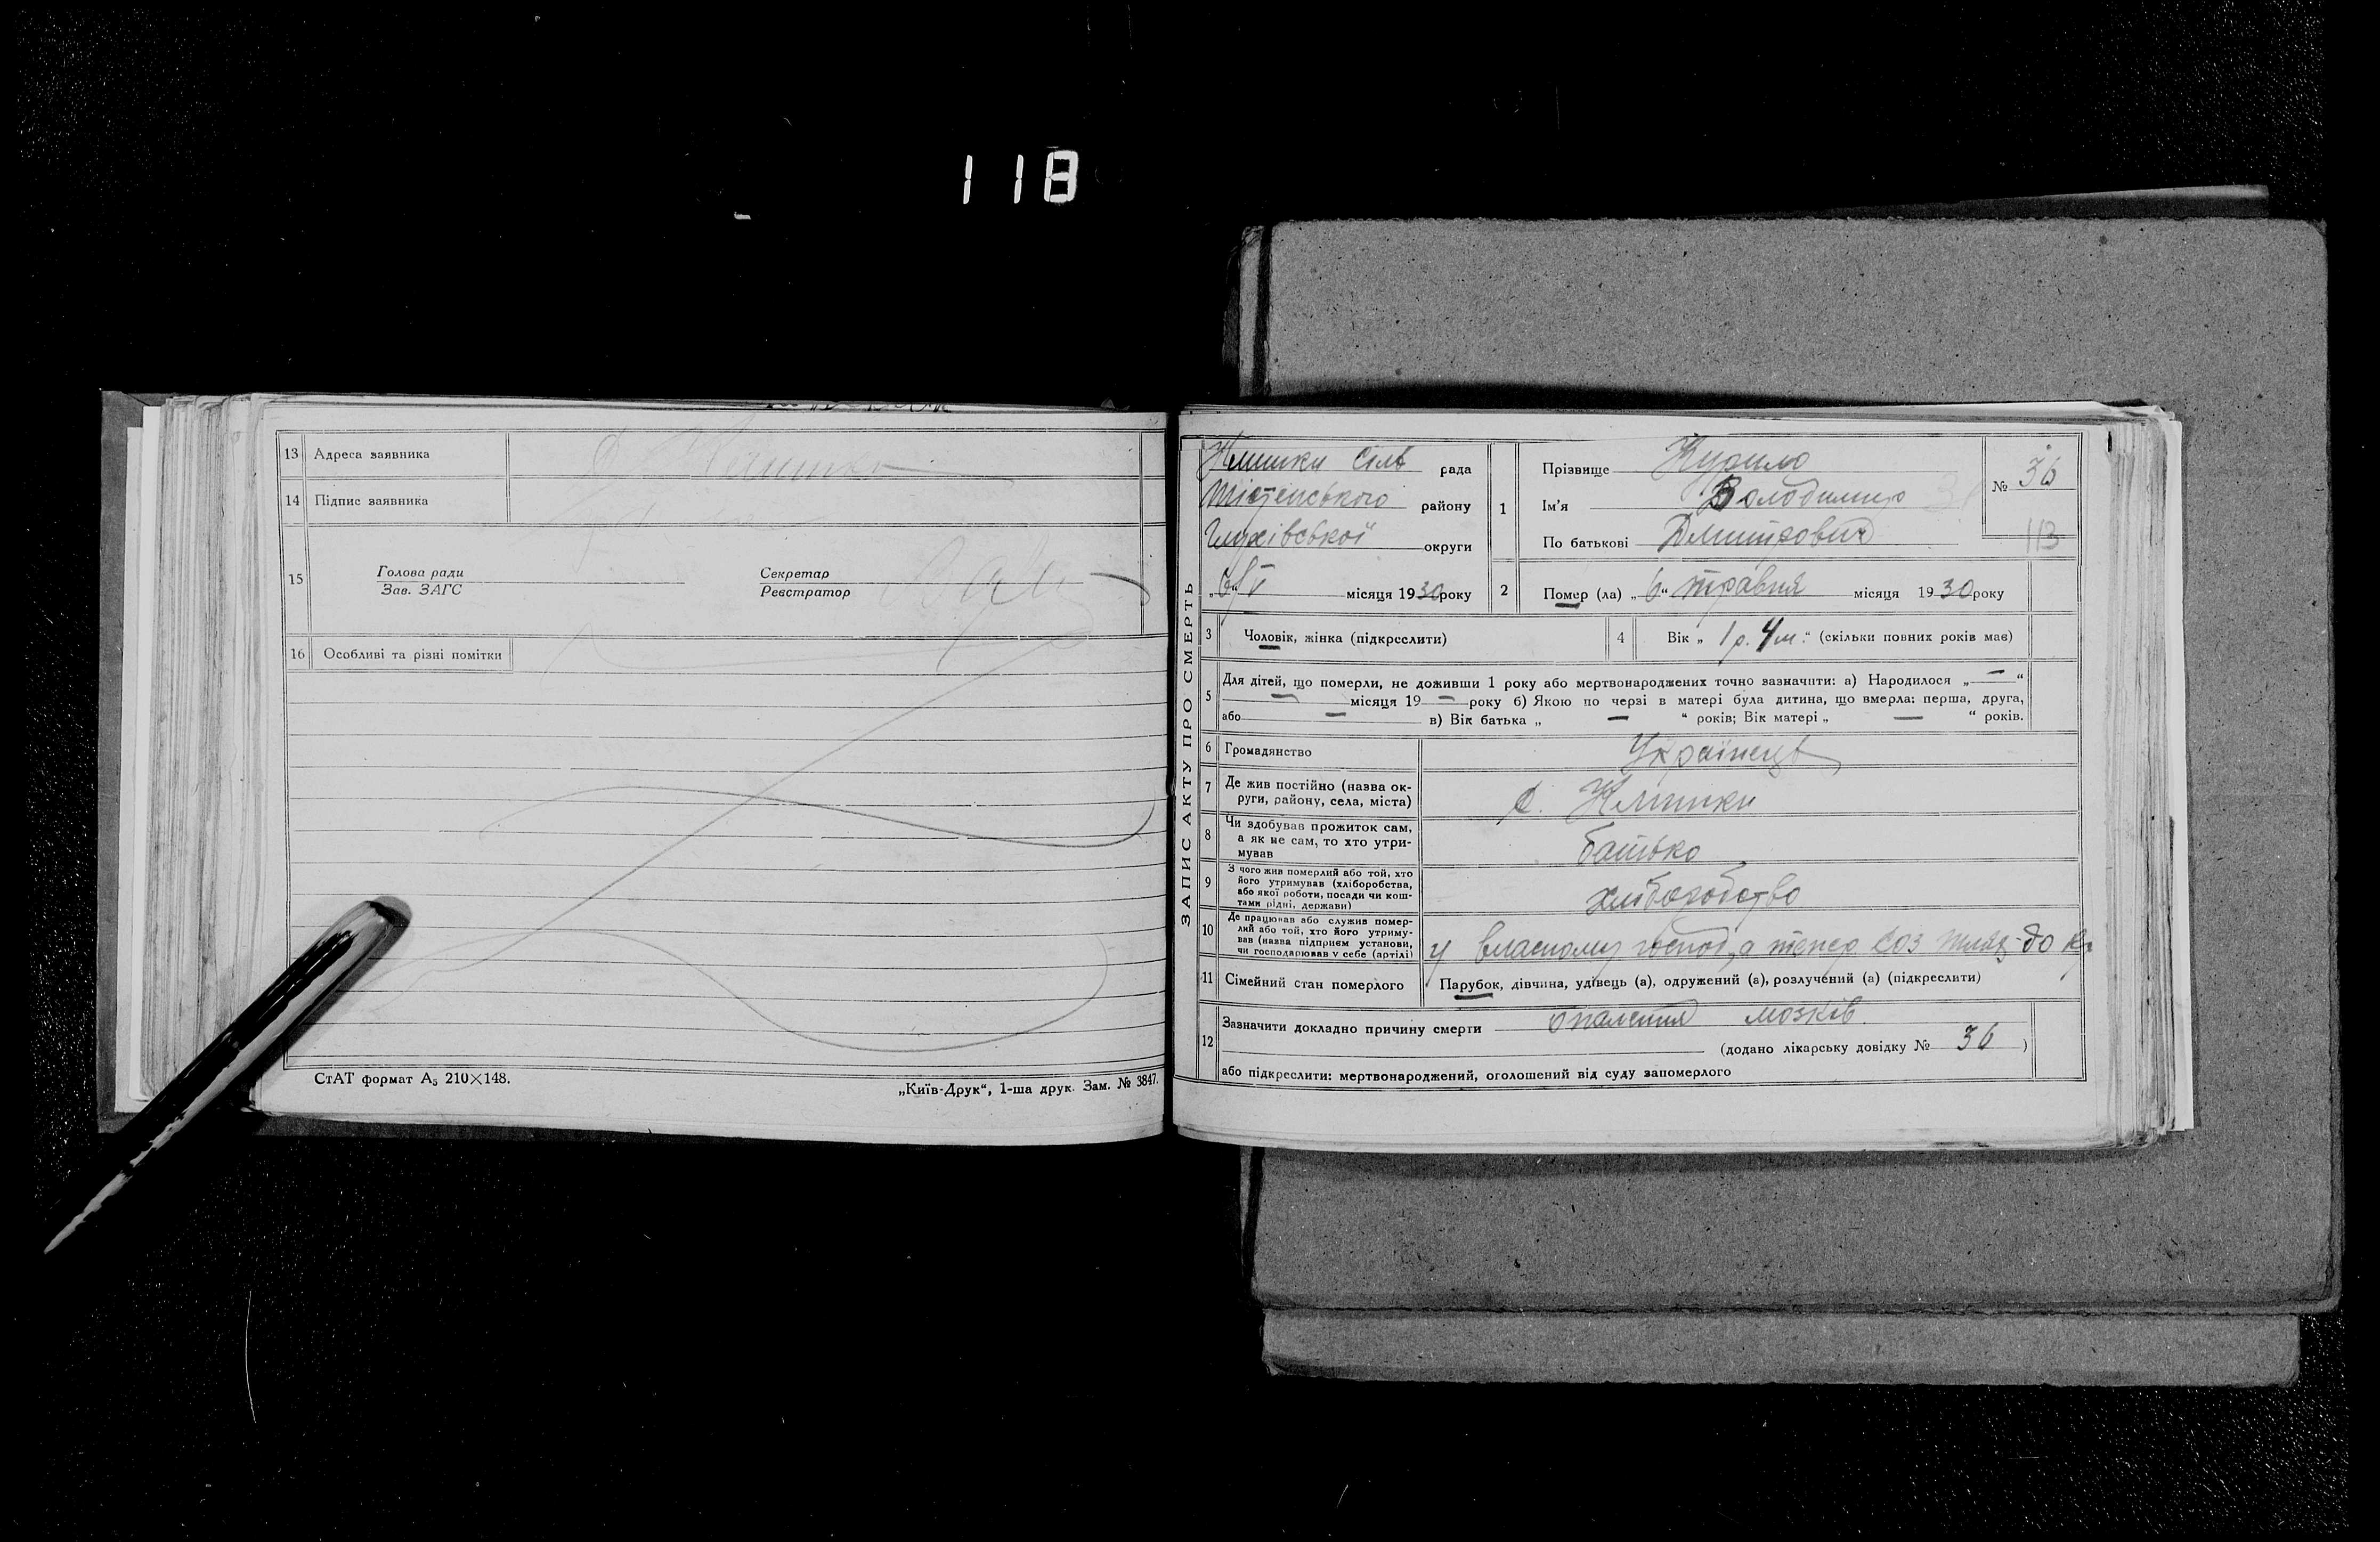 118
13 Адреса заявника
14 Підпис заявника
15 Голова ради
Зав. ЗАГС
Секретар
Реєстратор
16 Особливі та різні помітки
СтАТ формат А₅ 210×148.
„Київ-Друк“, 1-ша друк. Зам. № 3847.
ЗАПИС АКТУ ПРО СМЕРТЬ
Клишки Сіль рада
района району
Глухівської округи
„6“ V місяця 1930 року
1 Прізвище Курило
Ім'я Володимир
По батькові Дмитрович
№ 36
113
2 Помер (ла) „6“ травня місяця 1930 року
3 Чоловік, жінка (підкреслити)
4 Вік „1 р. 4 м.“ (скільки повних років має)
5 Для дітей, що померли, не доживши 1 року або мертвонароджених точно зазначити: а) Народилося „—“
— місяця 19 — року б) Якою по черзі в матері була дитина, що вмерла: перша, друга,
або — в) Вік батька „ — “ років; Вік матері „ — “ років.
6 Громадянство Українець
7 Де жив постійно (назва округи, району, села, міста) с. Клишки
8 Чи здобував прожиток сам, а як не сам, то хто утримував батько
9 З чого жив померлий або той, хто його утримував (хліборобства, або якої роботи, посади чи коштами рідні, держави) хліборобство
10 Де працював або служив померлий або той, хто його утримував (назва підприєм установи, чи господарював у себе (артілі) у власному господ, а тепер Соз
11 Сімейний стан померлого Парубок, дівчина, удівець (а), одружений (а), розлучений (а) (підкреслити)
12 Зазначити докладно причину смерти опалення мозків
(додано лікарську довідку № 36)
або підкреслити: мертвонароджений, оголошений від суду запомерлого